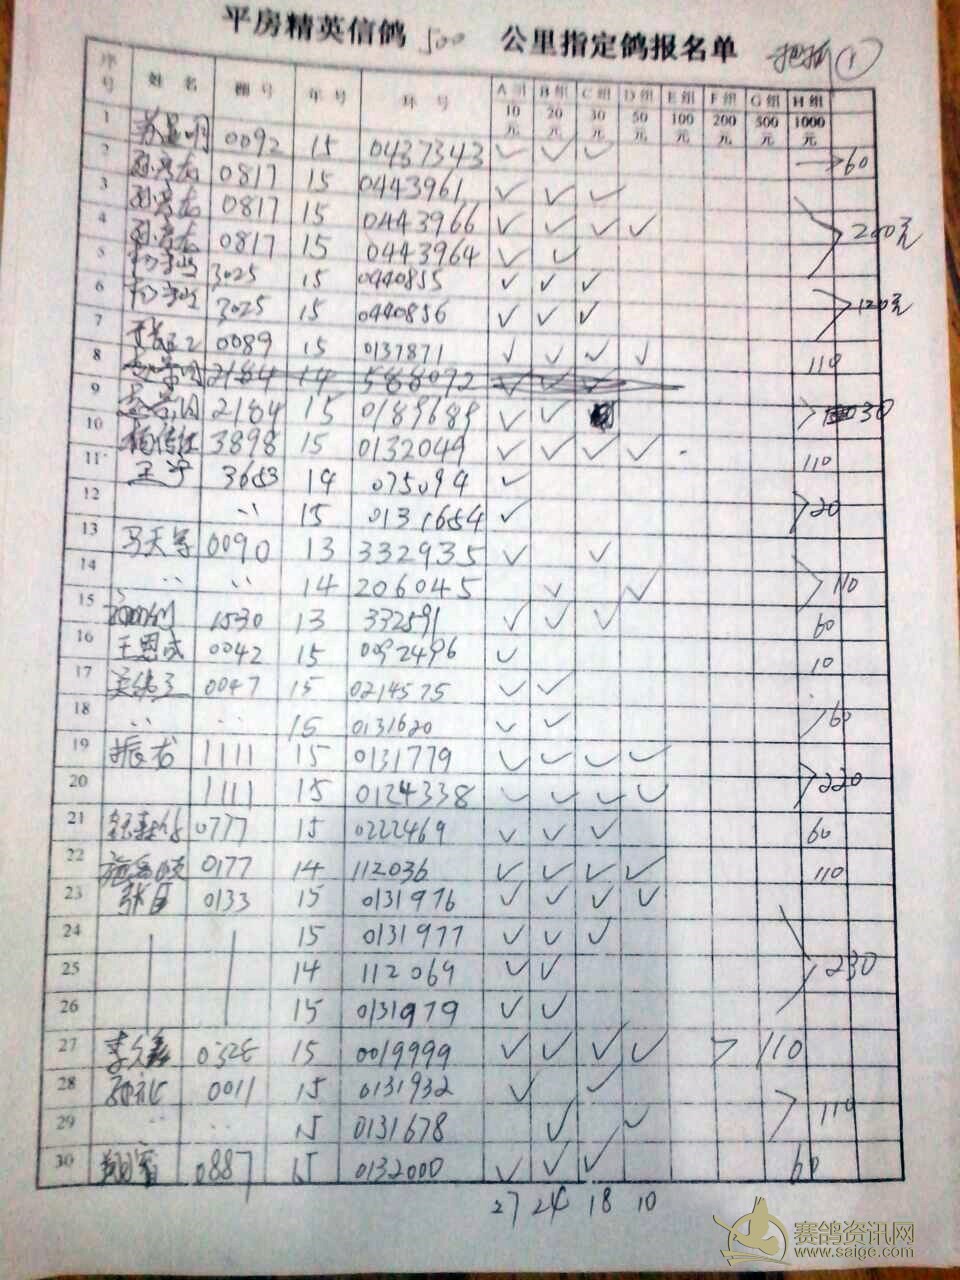 平房精英信鸽 500 公里指定鸽报名单 ①
序号 姓名 棚号 年号 环号 A组10元 B组20元 C组30元 D组50元 E组100元 F组200元 G组500元 H组1000元
1 0092 15 0437343 ✓ ✓ ✓ 60
2 0817 15 0443961 ✓ ✓ ✓
3 0817 15 0443966 ✓ ✓ ✓ ✓ 200元
4 0817 15 0443964 ✓ ✓
5 3025 15 0440855 ✓ ✓ ✓
6 3025 15 0440856 ✓ ✓ ✓ 120元
7 0089 15 0137871 ✓ ✓ ✓ ✓ 110
8 2184 14 588092 ✓ ✓ ✓
9 2184 15 0189689 ✓ ✓ 30
10 3898 15 0132049 ✓ ✓ ✓ ✓ 110
11 王宇 3653 14 075094 ✓
12 15 0131654 ✓ 20
13 马天军 0090 13 332935 ✓ ✓
14 14 206045 ✓ ✓ 110
15 1530 13 332591 ✓ ✓ ✓ 60
16 王恩成 0042 15 0092496 ✓ 10
17 0047 15 0214575 ✓ ✓
18 15 0131620 ✓ ✓ 60
19 振龙 1111 15 0131779 ✓ ✓ ✓ ✓
20 1111 15 0124338 ✓ ✓ ✓ ✓ 220
21 0777 15 0222469 ✓ ✓ ✓ 60
22 0177 14 112036 ✓ ✓ ✓ ✓ 110
23 0133 15 0131976 ✓ ✓ ✓ ✓
24 15 0131977 ✓ ✓ ✓
25 14 112069 ✓ ✓ 230
26 15 0131979 ✓ ✓
27 15 0019999 ✓ ✓ ✓ ✓ 110
28 0011 15 0131932 ✓ ✓
29 15 0131678 ✓ ✓ 110
30 0887 15 0132000 ✓ ✓ ✓ 60
27 24 18 10
赛鸽资讯网
www.saige.com